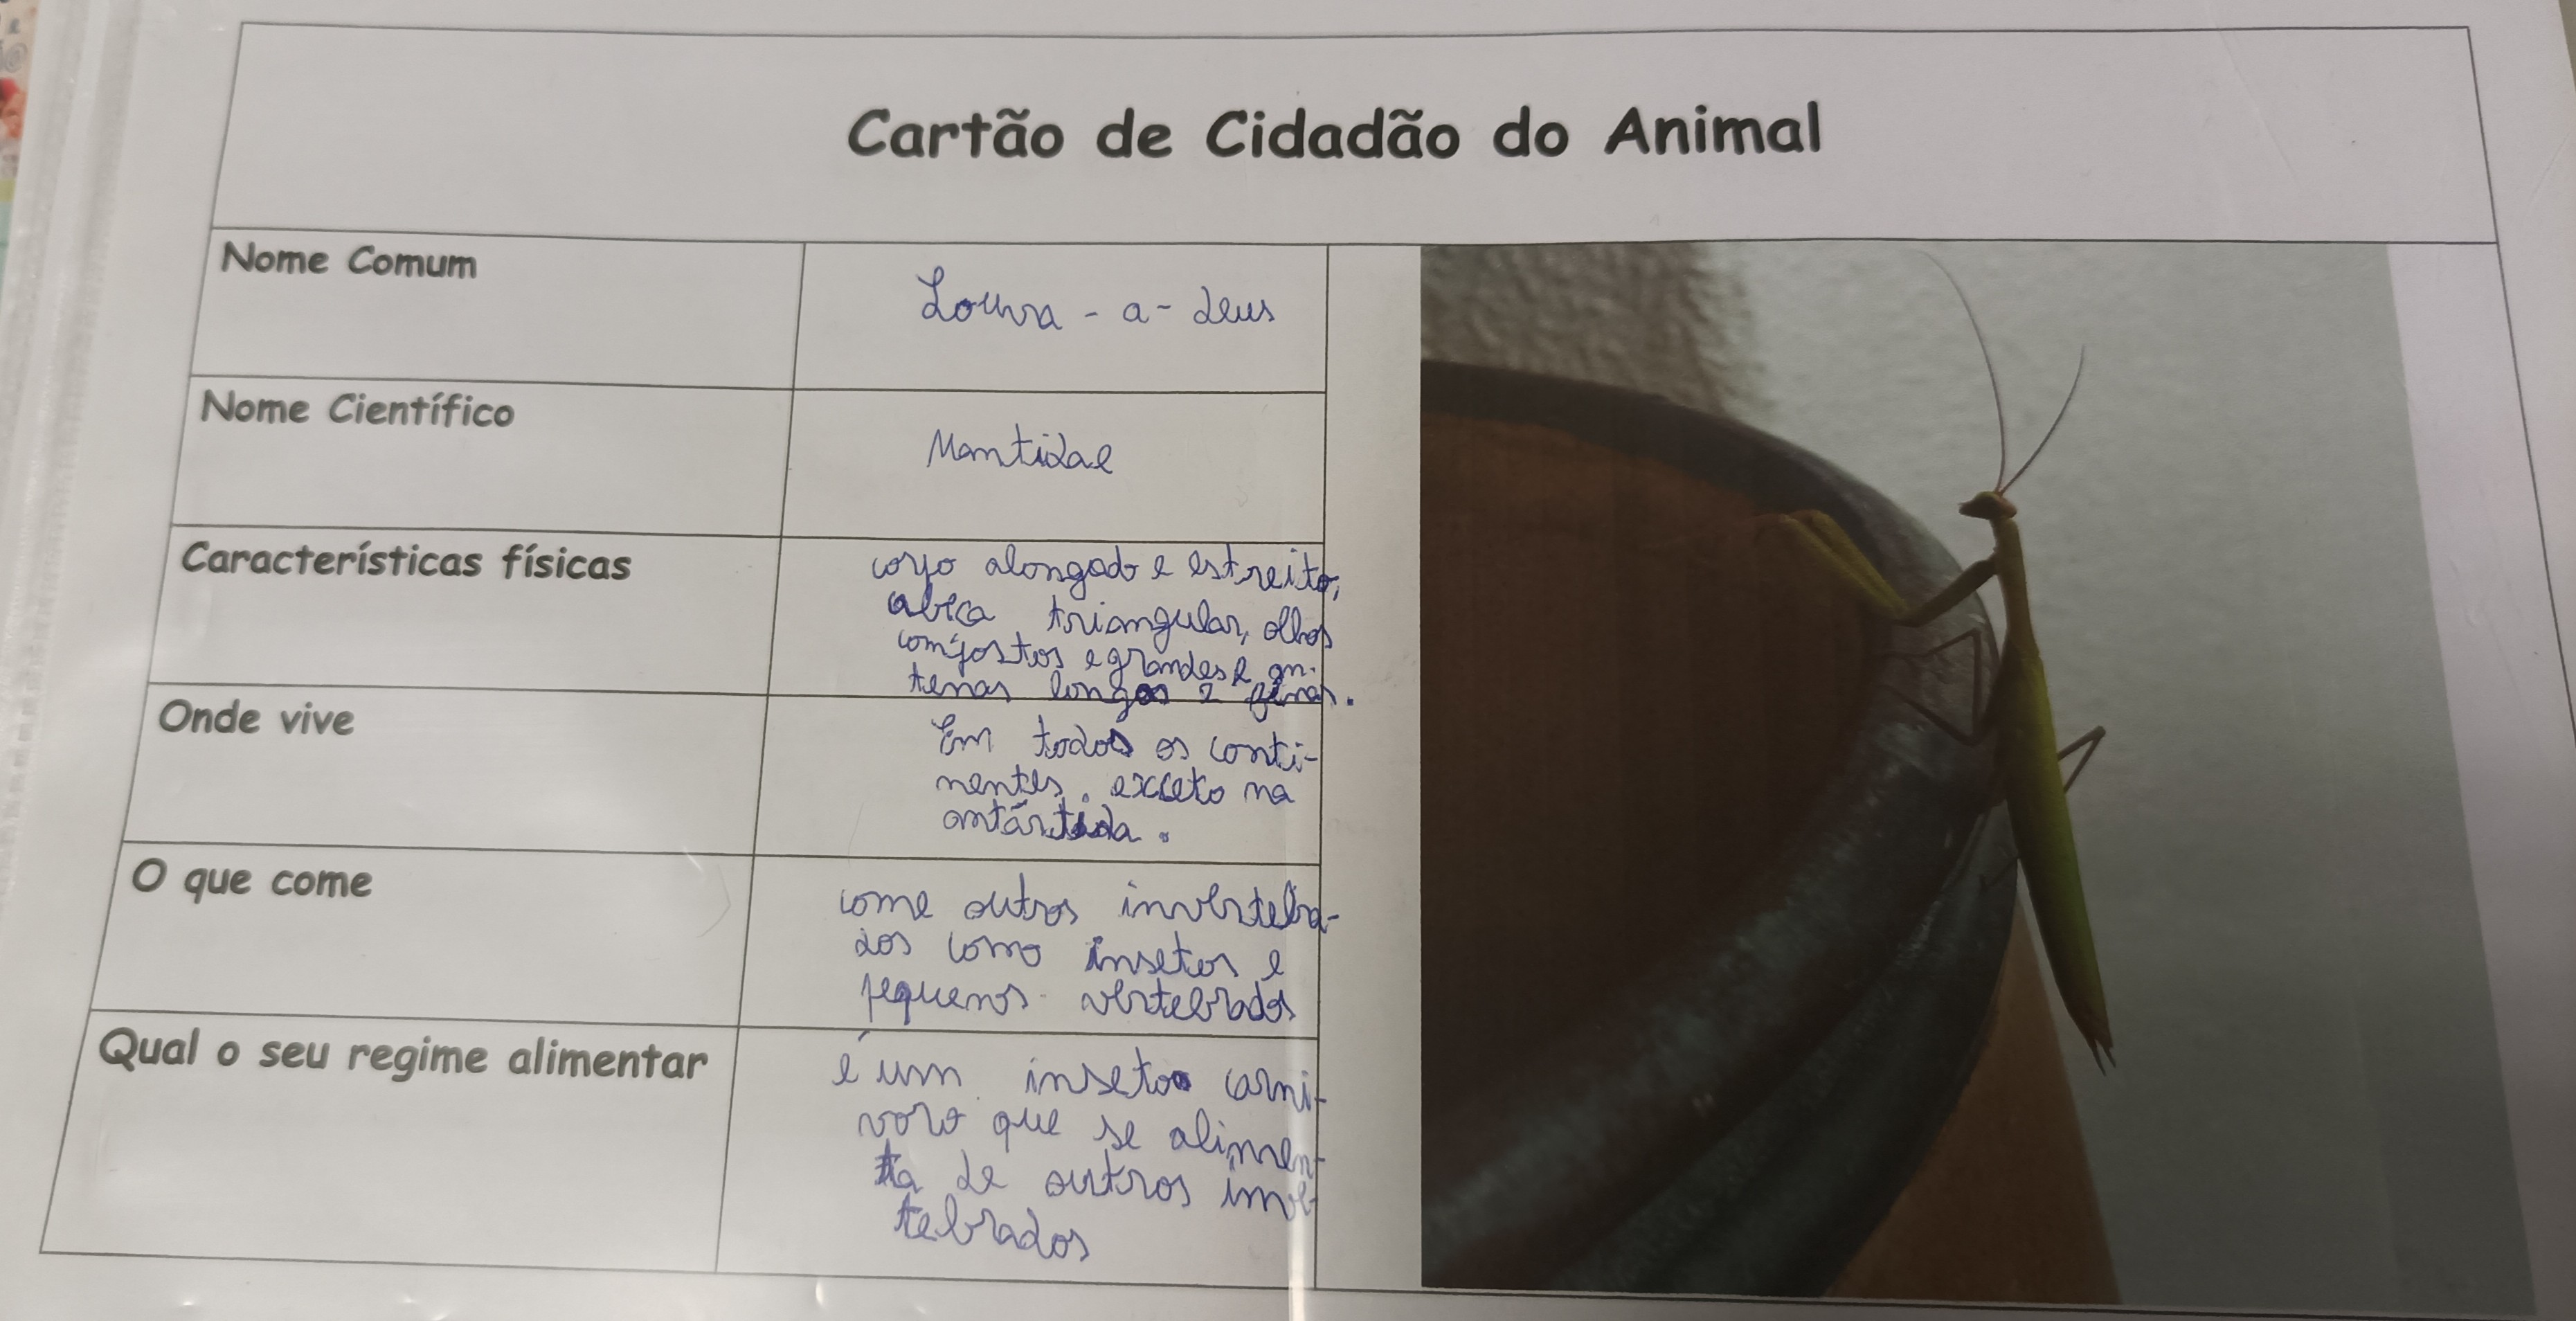 Cartão de Cidadão do Animal
Nome Comum
Louva-a-deus
Nome Científico
Mantidae
Características físicas
corpo alongado e estreito,
cabeca triangular, olhos
compostos e grandes e an-
tenas longas e finas.
Onde vive
Em todos os conti-
nentes. exceto na
antártida.
O que come
come outros invertebra-
dos como insetos e
pequenos vertebrados
Qual o seu regime alimentar
é um inseto carni-
voro que se alimen-
ta de outros inver-
tebrados